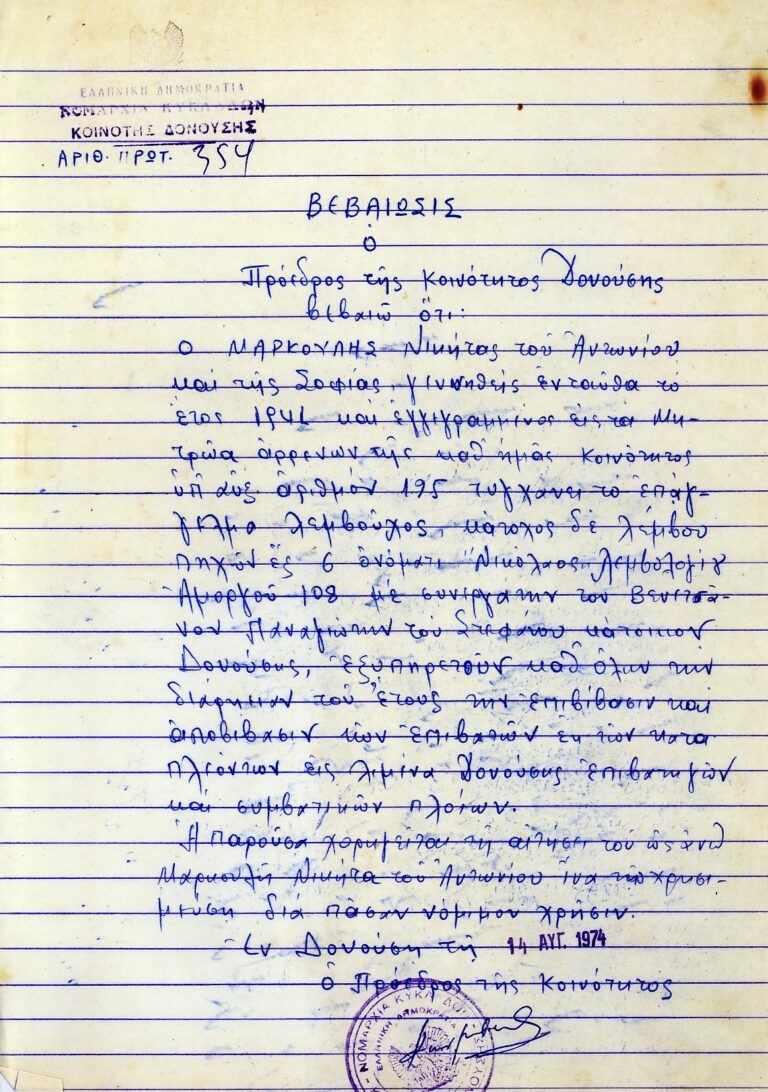 ΕΛΛΗΝΙΚΗ ΔΗΜΟΚΡΑΤΙΑ
ΝΟΜΑΡΧΙΑ ΚΥΚΛΑΔΩΝ
ΚΟΙΝΟΤΗΣ ΔΟΝΟΥΣΗΣ
ΑΡΙΘ. ΠΡΩΤ. 354
ΒΕΒΑΙΩΣΙΣ
Ὁ
Πρόεδρος τῆς Κοινότητος Δονούσης
βεβαιῶ ὅτι:
Ο ΜΑΡΚΟΥΛΗΣ Νικήτας τοῦ Ἀντωνίου
καί τῆς Σοφίας, γεννηθείς ἐνταῦθα τό
ἔτος καί ἐγγεγραμμένος εἰς τά Μη-
τρῶα ἀρρένων τῆς καθ' ἡμᾶς Κοινότητος
ὑπ' αὔξ. ἀριθμόν 195 τυγχάνει τό ἐπάγ-
γελμα λεμβοῦχος, κάτοχος δέ λέμβου
πηχῶν ἕξ 6 ὀνόματι Νικόλαος Λεμβολογίου
Ἀμοργοῦ 108 μέ συνεργάτην τον Βενετσά-
νον Παναγιώτην τοῦ Στεφάνου κάτοικον
Δονούσης, ἐξυπηρετοῦν καθ' ὅλην τήν
διάρκειαν τοῦ ἔτους την ἐπιβίβασιν καί
ἀποβίβασιν τῶν ἐπιβατῶν ἐκ τῶν κατα
πλεόντων εἰς λιμένα Δονούσης ἐπιβατηγῶν
καί συμβατικῶν πλοίων.
Ἡ παροῦσα χορηγεῖται τῇ αἰτήσει τοῦ ὡς ἄνω
Μαρκουλῆ Νικήτα τοῦ Ἀντωνίου ἵνα τῷ χρησι-
μεύσῃ διά πᾶσαν νόμιμον χρῆσιν.
Ἐν Δονούσῃ τῇ 14 ΑΥΓ. 1974
Ὁ Πρόεδρος τῆς Κοινότητος
ΝΟΜΑΡΧΙΑ ΚΥΚΛΑΔΩΝ
ΕΛΛΗΝΙΚΗ ΔΗΜΟΚΡΑΤΙΑ